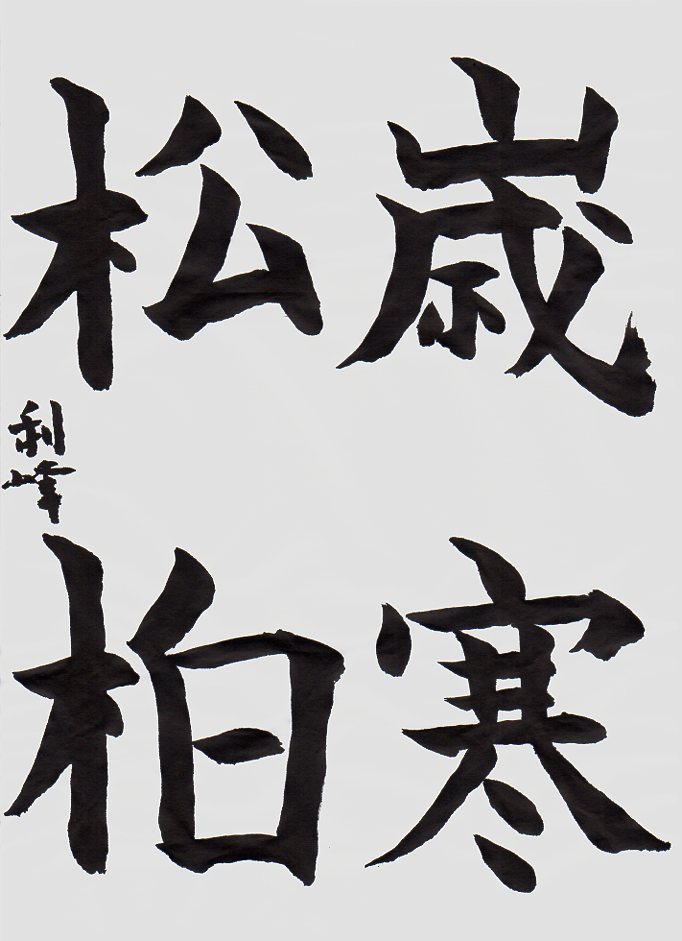 歳寒
松柏
利峰